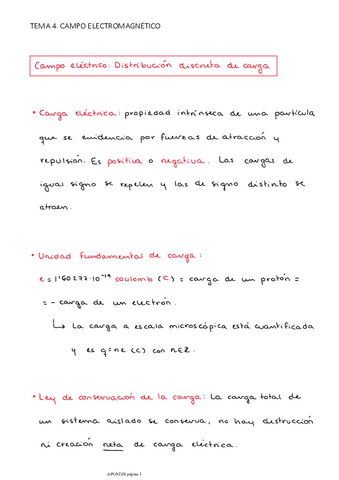 TEMA 4. CAMPO ELECTROMAGNÉTICO
Campo eléctrico: Distribución discreta de carga
• Carga eléctrica: propiedad intrínseca de una partícula
que se evidencia por fuerzas de atracción y
repulsión. Es positiva o negativa. Las cargas de
igual signo se repelen y las de signo distinto se
atraen.
• Unidad fundamental de carga:
e = 1'60277·10⁻¹⁹ coulomb (C) = carga de un protón =
= - carga de un electrón.
↳ La carga a escala microscópica está cuantificada
y es q = n e (C) con n∈Z.
• Ley de conservación de la carga: La carga total de
un sistema aislado se conserva, no hay destrucción
ni creación neta de carga eléctrica.
APUNTES página 1